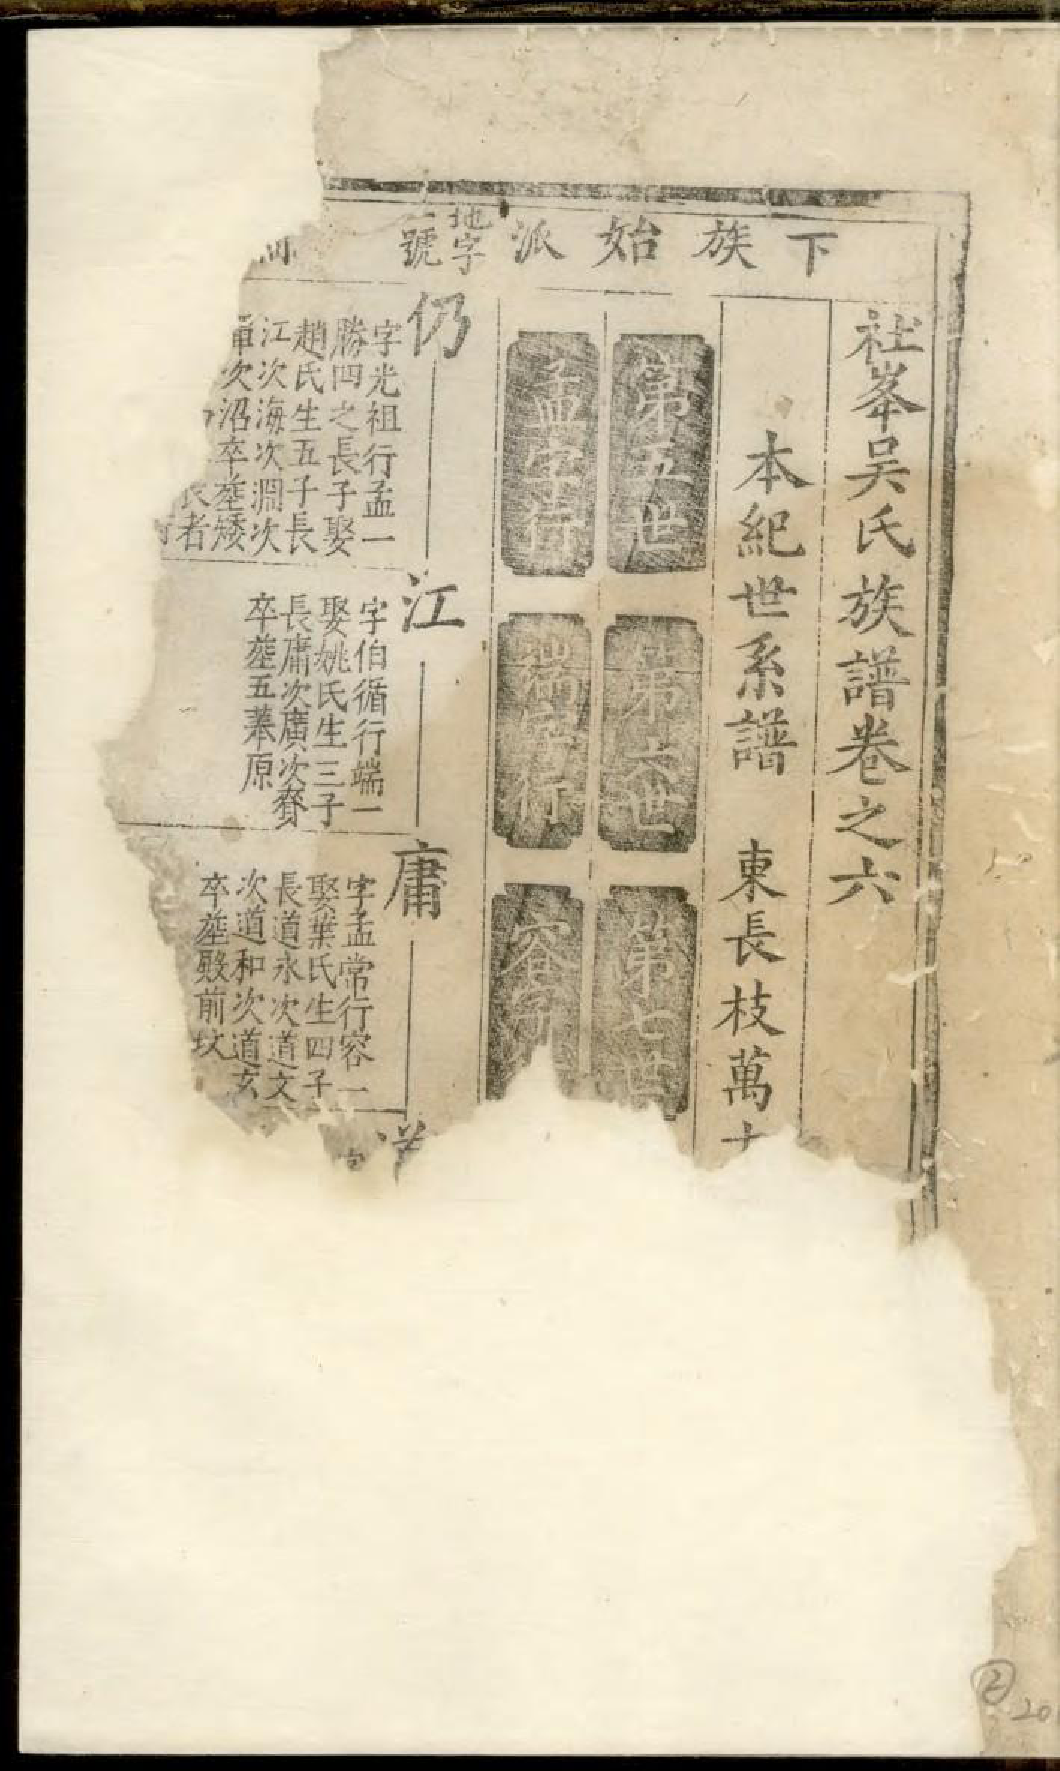 下族始派
地字
號
社峯吳氏族譜卷之六
本紀世系譜 東長枝萬
第五世
第六世
第七世
孟字行
端字行
容字
仍
字光祖行孟一
勝四之長子娶
趙氏生五子長
江次海次淵次
次沼卒塟矮
者
江
字伯循行端一
娶姚氏生三子
長庸次廣次賡
卒塟五萆原
庸
字孟常行容一
娶葉氏生四子
長道永次道文
次道和次道玄
卒塟殿前坟